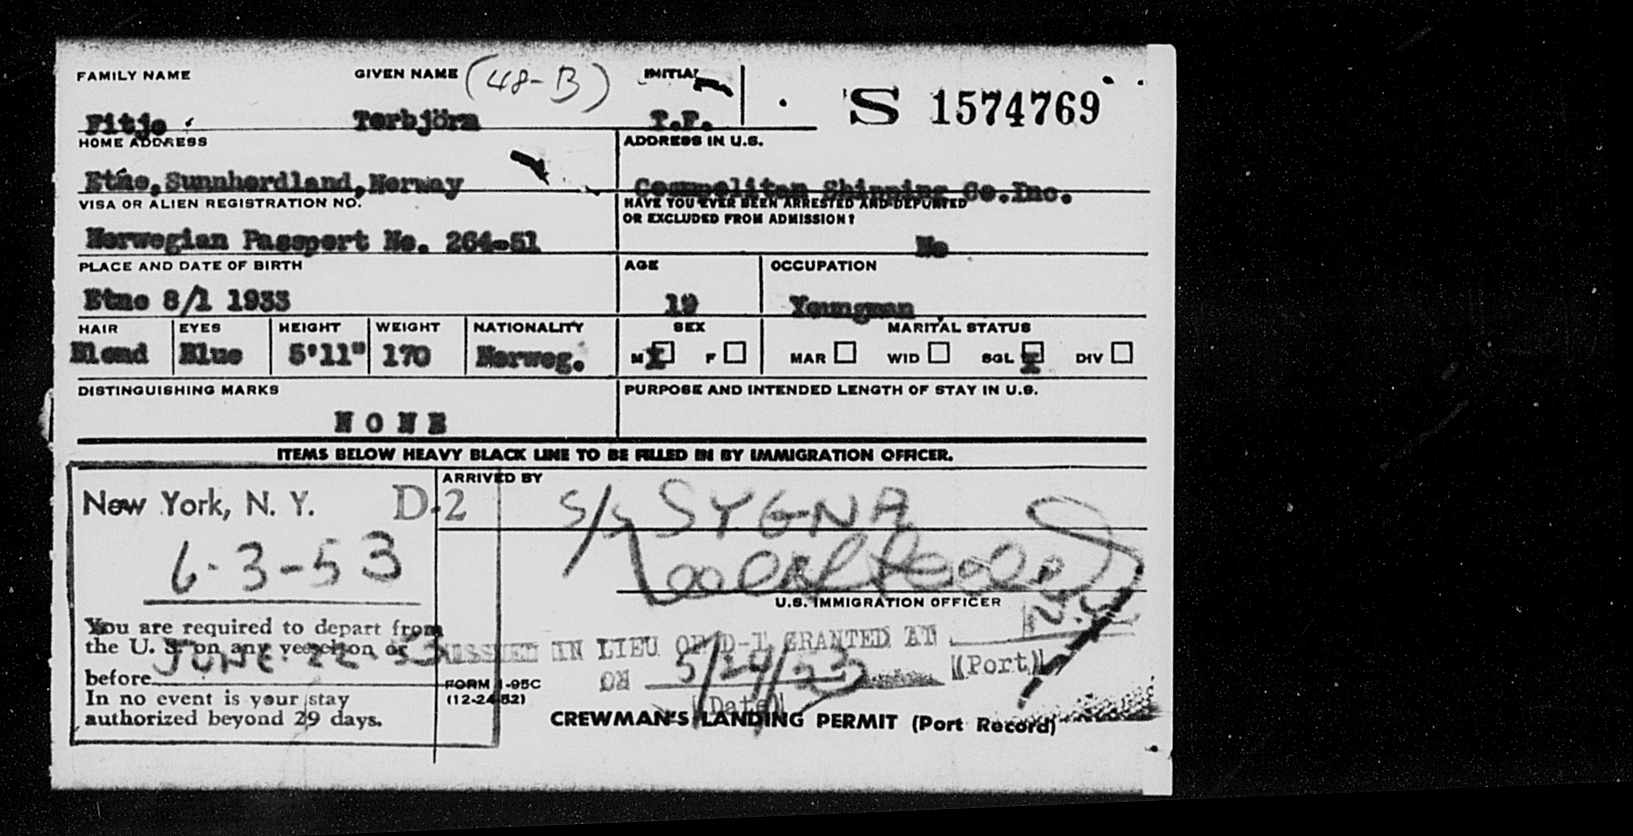 FAMILY NAME GIVEN NAME (48-B) INITIAL
S 1574769
Fitje Torbjörn T.F.
HOME ADDRESS ADDRESS IN U.S.
Etne, Sunnhordland, Norway Cosmopolitan Shipping Co.Inc.
VISA OR ALIEN REGISTRATION NO. HAVE YOU EVER BEEN ARRESTED AND DEPORTED
OR EXCLUDED FROM ADMISSION?
Norwegian Passport No. 264-51 No
PLACE AND DATE OF BIRTH AGE OCCUPATION
Etne 8/1 1933 19 Youngman
HAIR EYES HEIGHT WEIGHT NATIONALITY SEX MARITAL STATUS
Blond Blue 5'11" 170 Norweg. M X F MAR WID SGL X DIV
DISTINGUISHING MARKS PURPOSE AND INTENDED LENGTH OF STAY IN U.S.
NONE
ITEMS BELOW HEAVY BLACK LINE TO BE FILLED IN BY IMMIGRATION OFFICER.
ARRIVED BY
New York, N. Y. D-2 S/S SYGNA
6-3-53
U.S. IMMIGRATION OFFICER
You are required to depart from
the U. S. on any vessel on or
before JUNE 22-53
In no event is your stay
authorized beyond 29 days.
ISSUED IN LIEU OF D-1 GRANTED AT N.Y.
(Port)
ON 5/24/53
(Date)
FORM I-95C
(12-24-52)
CREWMAN'S LANDING PERMIT (Port Record)